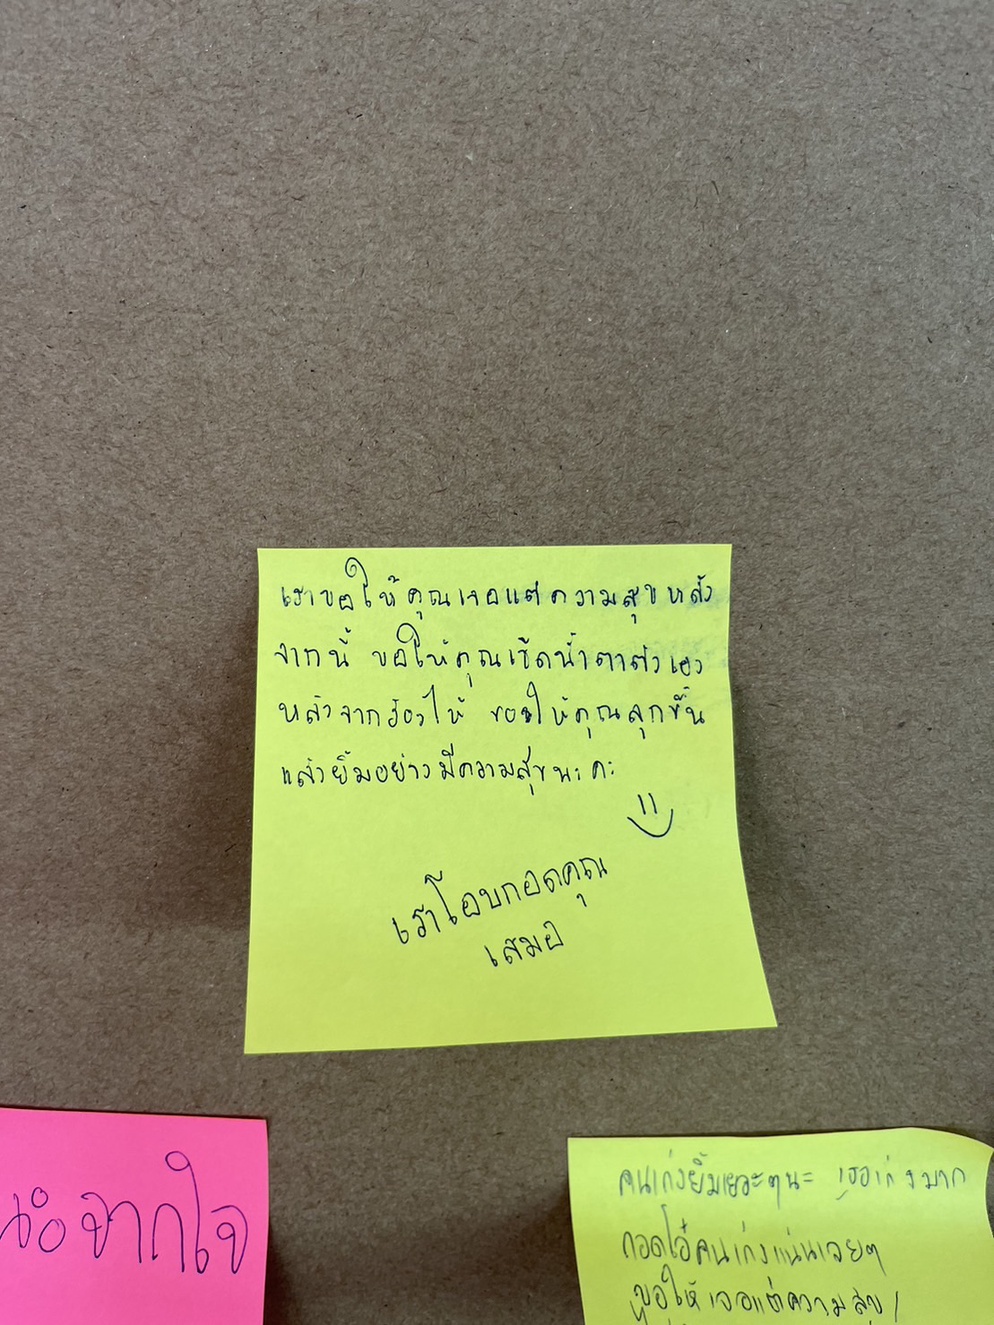 เราขอให้คุณเจอแต่ความสุขหลัง
จากนี้ ขอให้คุณเช็ดน้ำตาตัวเอง
หลังจากร้องไห้ ขอให้คุณลุกขึ้น
แล้วยิ้มอย่างมีความสุขนะคะ
เราโอบกอดคุณ
เสมอ
จากใจ
คนเก่งยิ้มเยอะๆนะ เธอเก่งมาก
กอดโอ๋คนเก่งแน่นเลยๆ
ขอให้เจอแต่ความสุข